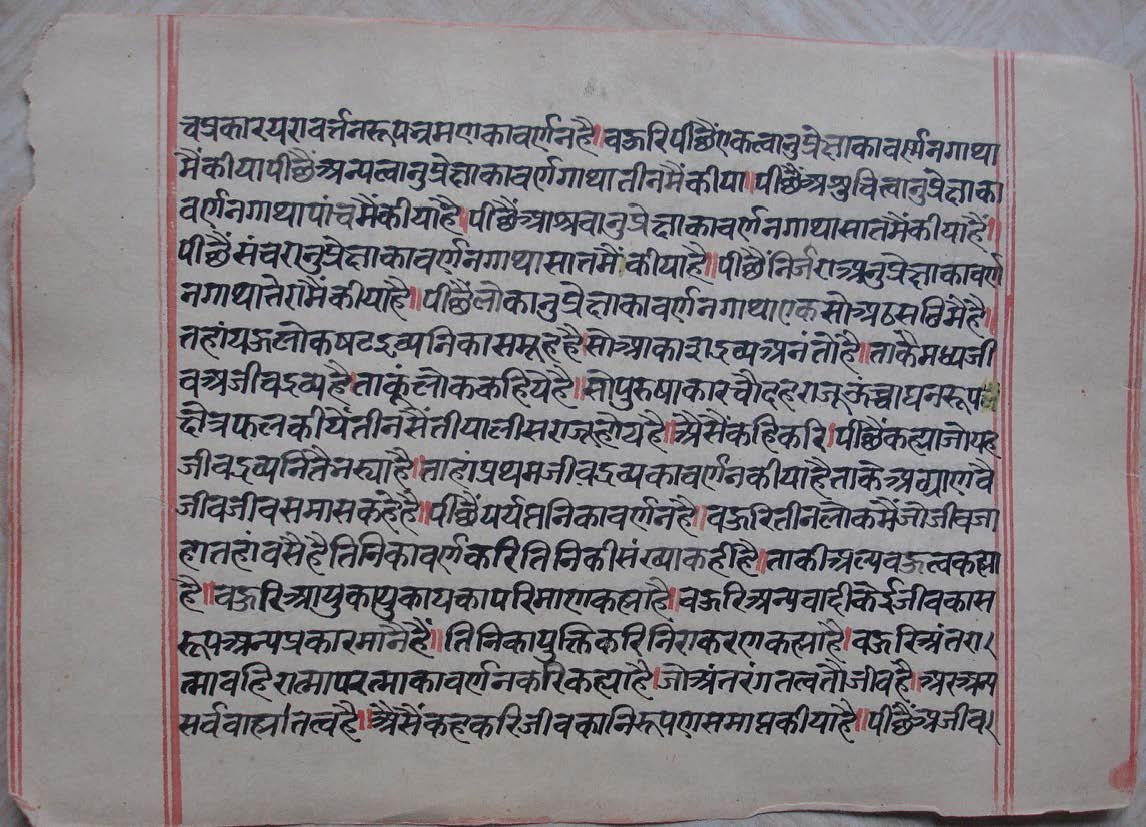 चप्रकारपरावर्त्तनरूपभ्रमणकावर्णनहै॥वऊरिपीछैंएकत्वानुप्रेक्षाकावर्णनगाथा
मैंकीयापीछैंअन्यत्वानुप्रेक्षाकावर्णगाथातीनमैंकीया॥पीछैंअशुचित्वानुप्रेक्षाका
वर्णनगाथापांचमैंकीयाहै॥पीछैंआश्रवानुप्रेक्षाकावर्णनगाथासातमैंकीयाहैं॥
पीछैंसंवरानुप्रेक्षाकावर्णनगाथासातमैंकीयाहै॥पीछैंनिर्जराअनुप्रेक्षाकावर्ण
नगाथातेरामैंकीयाहै॥पीछैंलोकानुप्रेक्षाकावर्णनगाथाएकसोअठसठिमैहै॥
तहांयऊलोकषटद्रव्यनिकासमूहहै॥सोआकाशद्रव्यअनंतोहै॥ताकैमध्यजी
वअजीवद्रव्यहै॥ताकूंलोककहियेहै॥सोपुरुषाकारचौदहराजूऊच्चाघनरूप
क्षेत्रफलकीयेंतीनसैंतीयालीसराजूहोयहै॥अैसैंकहिकरि॥पीछैंकह्याजोयह
जीवद्रव्यनितैंभस्याहै॥ताहांप्रथमजीवद्रव्यकावर्णनकीयाहैताके
जीवजीवसमासकहेहैं॥पीछैंपर्यप्तनिकावर्णनहै॥वऊरितीनलोकमैंजोजीवजा
हातहांवसैहैतिनिकावर्णकरितिनिकीसंख्याकहीहै॥ताकीअल्पवऊत्वकह्या
है॥वऊरिआयुकायुकायकापरिमाणकह्याहै॥वऊरिअन्यवादीकेईजीवकास
रूपअन्यप्रकारमानैहैं॥तिनिकायुक्तिकरिनिराकरणकह्याहै॥वऊरिअंतरा।
त्मावहिरात्मापरत्माकावर्णनकरिकह्याहै॥जोअंतरंगतत्वतौजीवहै॥अरअन्य
सर्ववाह्यातत्वहै॥अैसैंकहकरिजीवकानिरूपणसमाप्तकीयाहै॥पीछैंअजीव।